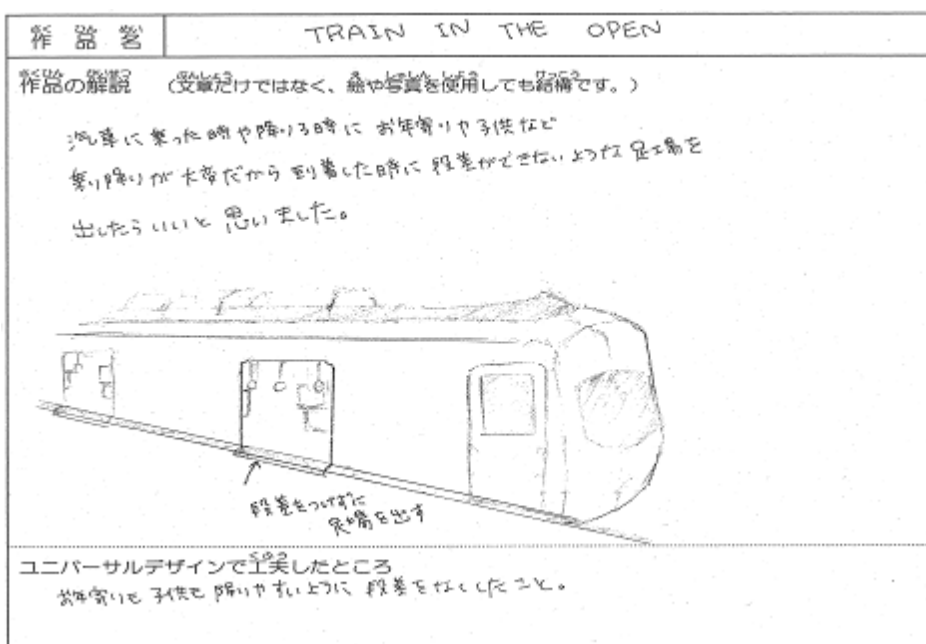 作品名 TRAIN IN THE OPEN
作品の解説 (文章だけではなく、絵や写真を使用しても結構です。)
汽車に乗った時や降りる時に お年寄りや子供など
乗り降りが大変だから 到着した時に 段差ができないような 足場を
出したらいいと 思いました。
段差をつけずに
足場を出す
ユニバーサルデザインで工夫したところ
お年寄りも 子供も 降りやすいように 段差をなくしたこと。